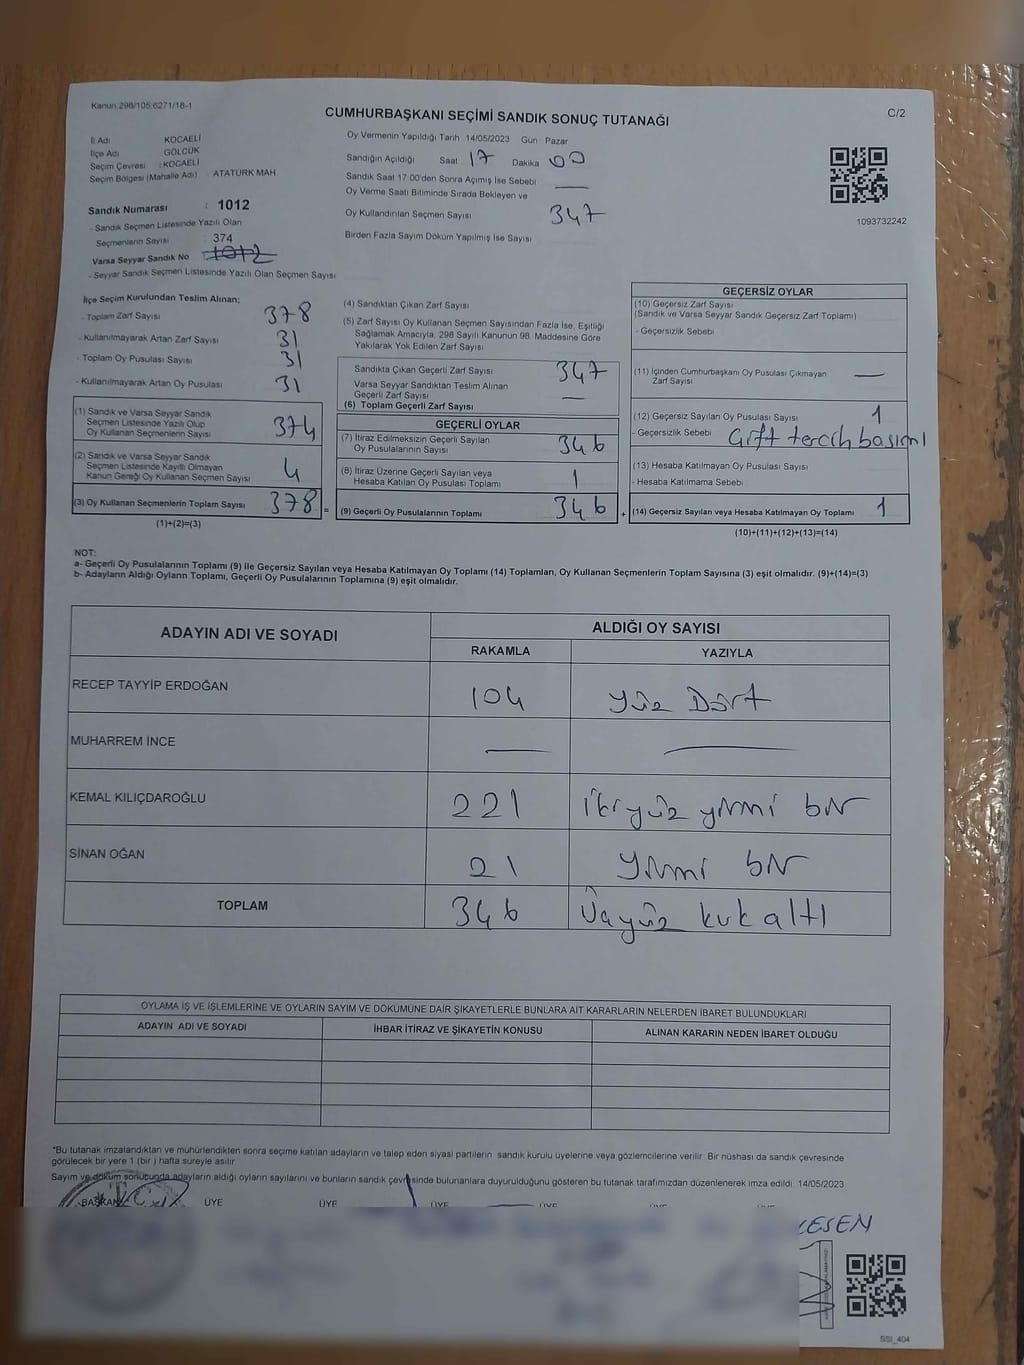 Kanun 298/105:6271/18-1
CUMHURBAŞKANI SEÇİMİ SANDIK SONUÇ TUTANAĞI
C/2
İl Adı KOCAELİ
İlçe Adı GÖLCÜK
Seçim Çevresi :KOCAELİ
Seçim Bölgesi (Mahalle Adı) ATATÜRK MAH.
Sandık Numarası : 1012
- Sandık Seçmen Listesinde Yazılı Olan
Seçmenlerin Sayısı : 374
Varsa Seyyar Sandık No 1012
- Seyyar Sandık Seçmen Listesinde Yazılı Olan Seçmen Sayısı
Oy Vermenin Yapıldığı Tarih 14/05/2023 Gün Pazar
Sandığın Açıldığı Saat 17 Dakika 00
Sandık Saat 17:00'den Sonra Açımış İse Sebebi —
Oy Verme Saati Bitiminde Sırada Bekleyen ve
Oy Kullandırılan Seçmen Sayısı 347
Birden Fazla Sayım Döküm Yapılmış İse Sayısı
1093732242
İlçe Seçim Kurulundan Teslim Alınan;
- Toplam Zarf Sayısı 378
- Kullanılmayarak Artan Zarf Sayısı 31
- Toplam Oy Pusulası Sayısı 31
- Kullanılmayarak Artan Oy Pusulası 31
(1) Sandık ve Varsa Seyyar Sandık
Seçmen Listesinde Yazılı Olup
Oy Kullanan Seçmenlerin Sayısı 374
(2) Sandık ve Varsa Seyyar Sandık
Seçmen Listesinde Kayıtlı Olmayan
Kanun Gereği Oy Kullanan Seçmen Sayısı 4
(3) Oy Kullanan Seçmenlerin Toplam Sayısı 378 =
(1)+(2)=(3)
(4) Sandıktan Çıkan Zarf Sayısı
(5) Zarf Sayısı Oy Kullanan Seçmen Sayısından Fazla İse, Eşitliği
Sağlamak Amacıyla, 298 Sayılı Kanunun 98. Maddesine Göre
Yakılarak Yok Edilen Zarf Sayısı
Sandıkta Çıkan Geçerli Zarf Sayısı 347
Varsa Seyyar Sandıktan Teslim Alınan
Geçerli Zarf Sayısı —
(6) Toplam Geçerli Zarf Sayısı
GEÇERLİ OYLAR
(7) İtiraz Edilmeksizin Geçerli Sayılan
Oy Pusulalarının Sayısı 346
(8) İtiraz Üzerine Geçerli Sayılan veya
Hesaba Katılan Oy Pusulası Toplamı 1
(9) Geçerli Oy Pusulalarının Toplamı 346 +
GEÇERSİZ OYLAR
(10) Geçersiz Zarf Sayısı
(Sandık ve Varsa Seyyar Sandık Geçersiz Zarf Toplamı)
- Geçersizlik Sebebi
(11) İçinden Cumhurbaşkanı Oy Pusulası Çıkmayan
Zarf Sayısı —
(12) Geçersiz Sayılan Oy Pusulası Sayısı 1
- Geçersizlik Sebebi Çift tercih basımı
(13) Hesaba Katılmayan Oy Pusulası Sayısı
- Hesaba Katılmama Sebebi
(14) Geçersiz Sayılan veya Hesaba Katılmayan Oy Toplamı 1
(10)+(11)+(12)+(13)=(14)
NOT:
a- Geçerli Oy Pusulalarının Toplamı (9) ile Geçersiz Sayılan veya Hesaba Katılmayan Oy Toplamı (14) Toplamları, Oy Kullanan Seçmenlerin Toplam Sayısına (3) eşit olmalıdır. (9)+(14)=(3)
b- Adayların Aldığı Oyların Toplamı, Geçerli Oy Pusulalarının Toplamına (9) eşit olmalıdır.
ADAYIN ADI VE SOYADI
ALDIĞI OY SAYISI
RAKAMLA YAZIYLA
RECEP TAYYİP ERDOĞAN 104 Yüz Dört
MUHARREM İNCE — —
KEMAL KILIÇDAROĞLU 221 ikiyüz yirmi bir
SİNAN OĞAN 21 Yirmi bir
TOPLAM 346 Üçyüz kırk altı
OYLAMA İŞ VE İŞLEMLERİNE VE OYLARIN SAYIM VE DÖKÜMÜNE DAİR ŞİKAYETLERLE BUNLARA AİT KARARLARIN NELERDEN İBARET BULUNDUKLARI
ADAYIN ADI VE SOYADI İHBAR İTİRAZ VE ŞİKAYETİN KONUSU ALINAN KARARIN NEDEN İBARET OLDUĞU
*Bu tutanak imzalandıktan ve mühürlendikten sonra seçime katılan adayların ve talep eden siyasi partilerin sandık kurulu üyelerine veya gözlemcilerine verilir. Bir nüshası da sandık çevresinde
görülecek bir yere 1 (bir) hafta süreyle asılır.
Sayım ve döküm sonucunda adayların aldığı oyların sayılarını ve bunların sandık çevresinde bulunanlara duyurulduğunu gösteren bu tutanak tarafımızdan düzenlenerek imza edildi. 14/05/2023
BAŞKAN ÜYE ÜYE ÜYE ÜYE ÜYE
ESEN
SSI_404